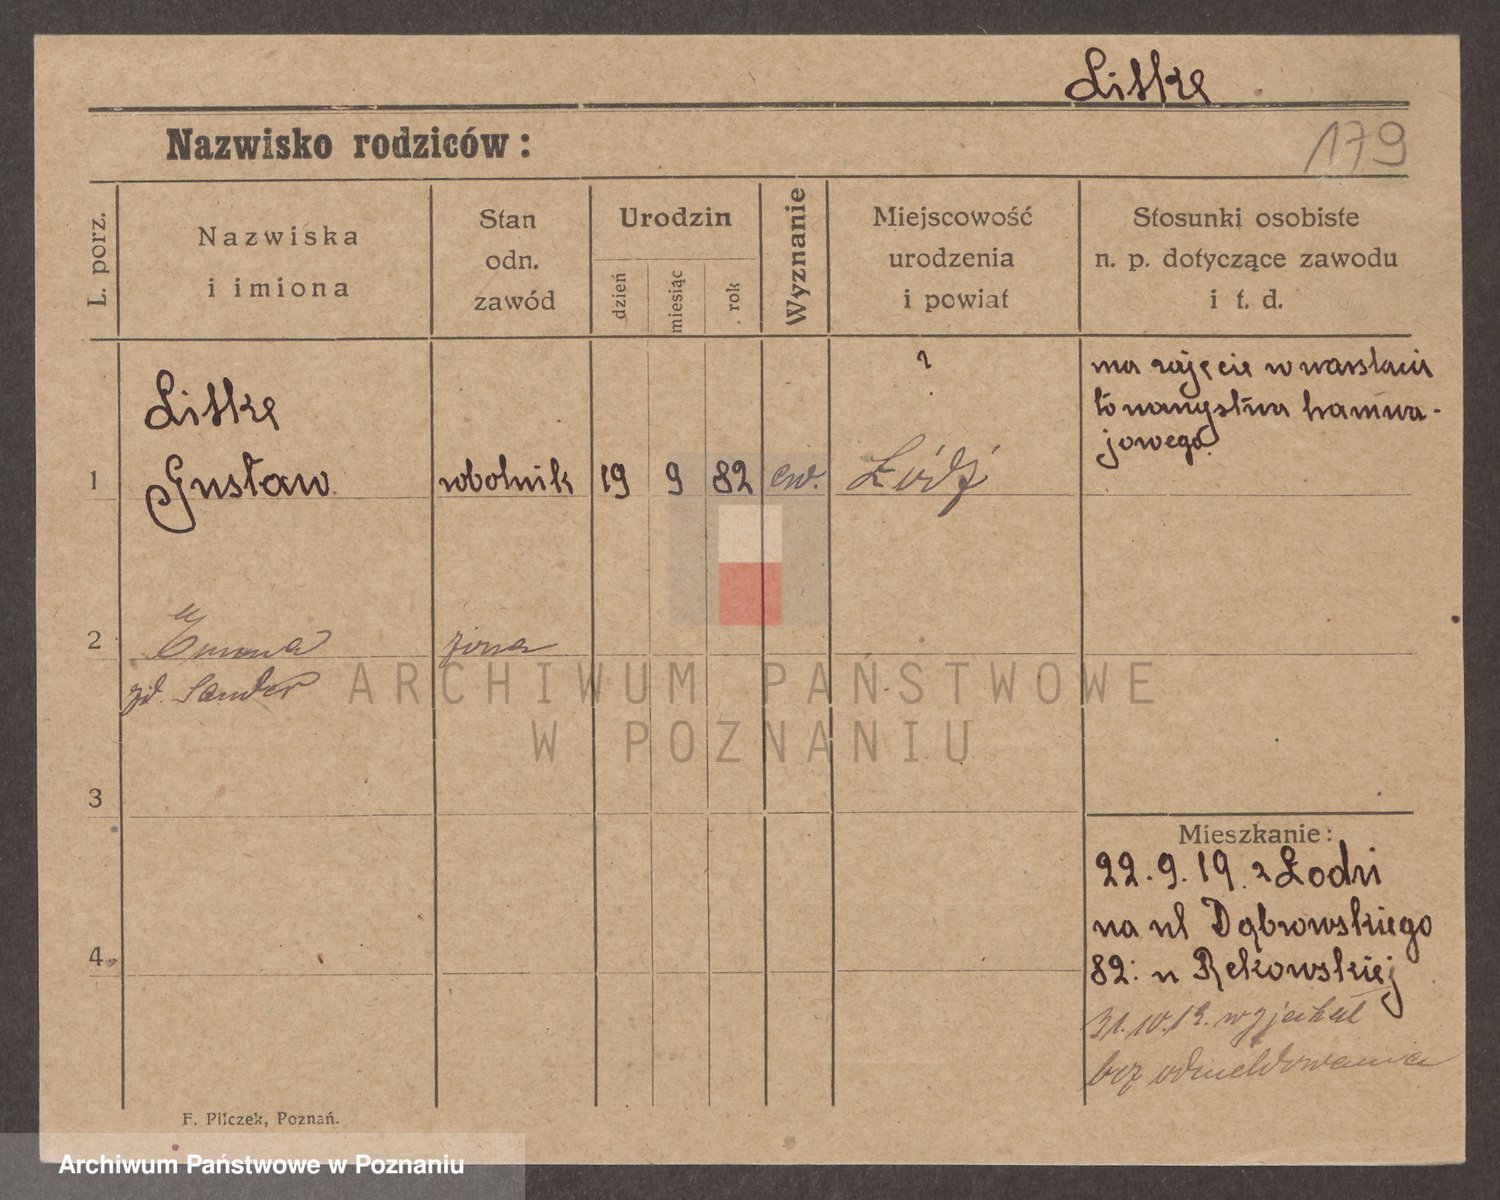 Liske
Nazwisko rodziców:
179
L. porz.
Nazwiska
i imiona
Stan
odn.
zawód
Urodzin
dzień
miesiąc
rok
Wyznanie
Miejscowość
urodzenia
i powiat
Stosunki osobiste
n. p. dotyczące zawodu
i t. d.
1
Liske
Gustaw
robotnik
19
9
82
ew.
?
Łódź
ma zajęcie w warstacie
towarzystwa tramwa-
jowego.
2
Emma
żd. Sander
żona
3
4
Mieszkanie:
22.9.19. z Łodzi
na ul Dąbrowskiego
82: u Rekowskiej
31.10.19. wyjechał
bez odmeldowania
F. Pilczek, Poznań.
ARCHIWUM PAŃSTWOWE
W POZNANIU
Archiwum Państwowe w Poznaniu